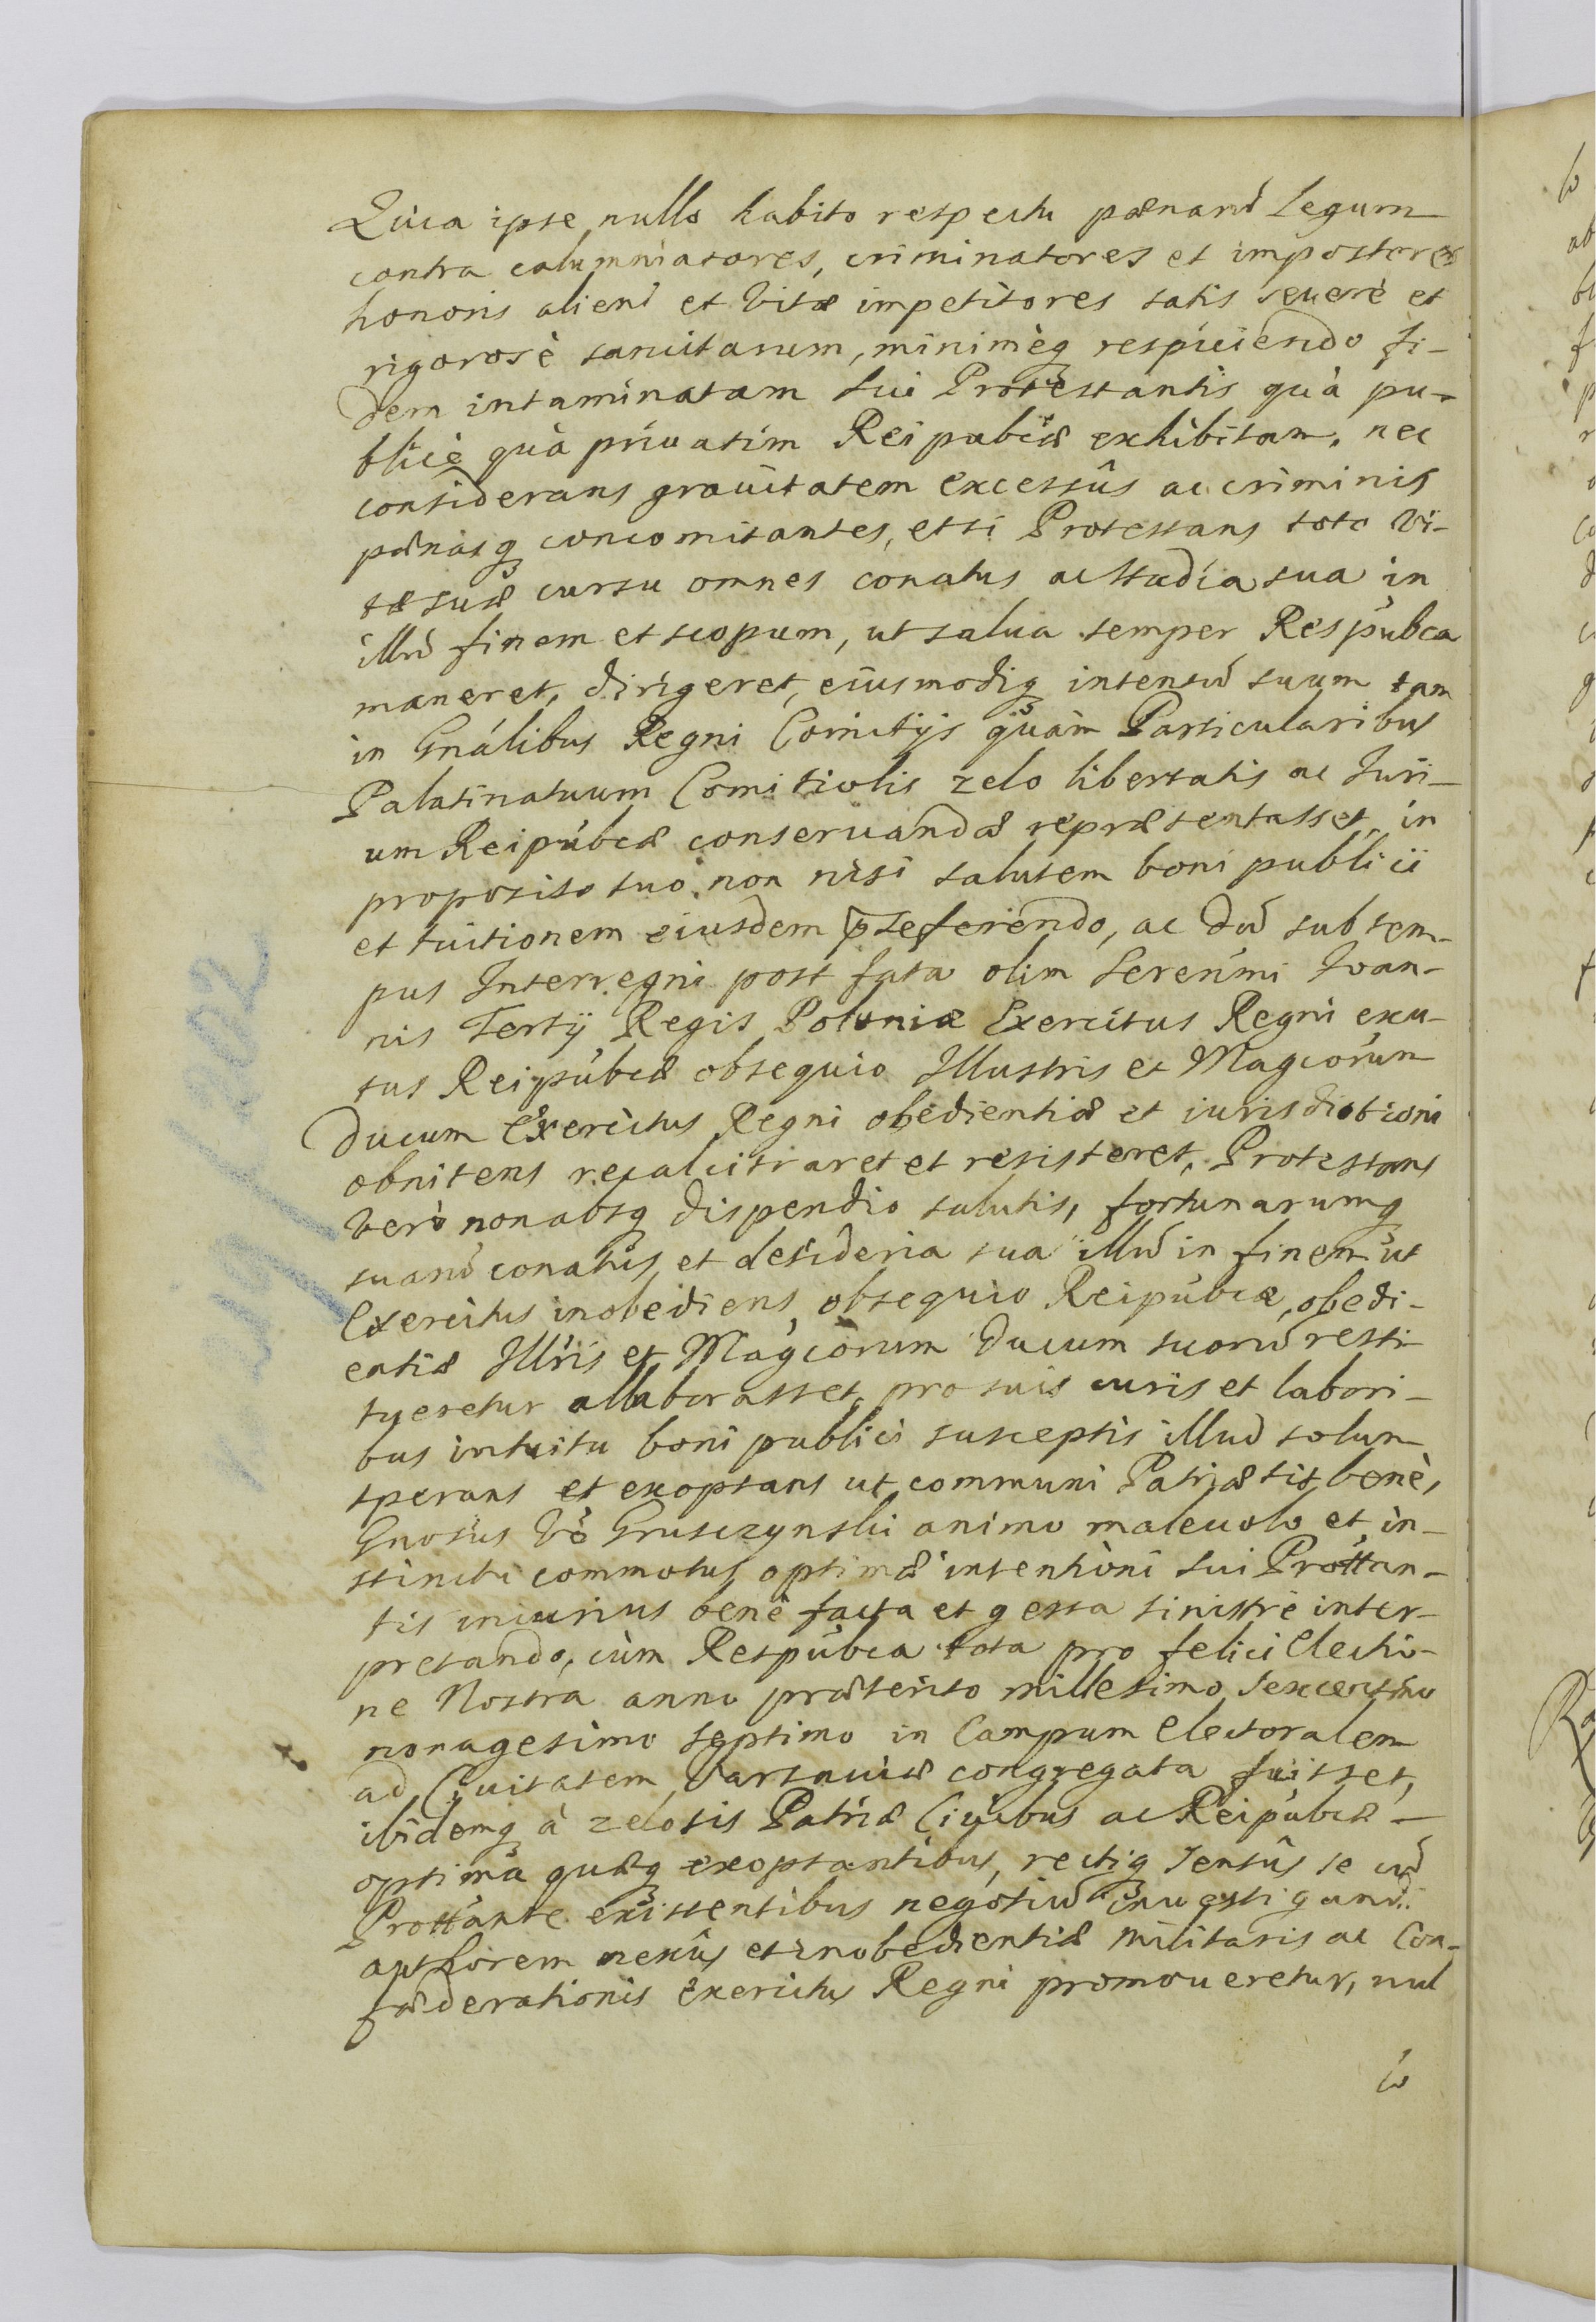 Quia ipse nullo habito respectu pœnarū Legum
contra calumniatores, criminatores et impostores
honoris alieni et vitæ impetitores satis seuerè et
rigorosè sancitarum, minimèq́ respiciendo fi-
dem intaminatam sui Protestantis quà pu-
blicè quà priuatim Reipubcæ exhibitam, nec
considerans grauitatem excessûs ac criminis
pœnasq́ concomitantes, etsi Protestans toto vi-
tæ suæ cursu omnes conatus ac studia sua in
illū finem et scopum, ut salua semper Respubca
maneret, dirigeret, eiusmodiq́ intentū suum tam
in Gnalibus Regni Comitijs quàm Particularibus
Palatinatuum Comitiolis zelo libertatis ac Juri-
um Reipubcæ conseruandæ repræsentasset, in
proposito suo non nisi salutem boni publici
et tuitionem eiusdem præferendo, ac dū sub tem-
pus Interregni post fata olim Serenmi Joan-
nis Tertij Regis Poloniæ Exercitus Regni exu-
tus Reipubcæ obsequio Illustris et Magcorum
Ducum Exercitus Regni obedientiæ et iurisdictioni
obnitens recalcitraret et resisteret, Protestans
verò non absq́ dispendio salutis, fortunarumq́
suarū conatus et desideria sua illū in finem ut
Exercitus inobediens, obsequio Reipubcæ, obedi-
entiæ Illris et Magcorum Ducum suorū resti-
tueretur allaborasset, pro suis curis et labori-
bus intuitu boni publici susceptis illud solum
sperans et exoptans ut communi Patriæ sit benè,
Gnosus Vo Gruszczynski animo maleuolo et in-
stinctu commotus optimæ intentioni sui Prottan-
tis iniurius benè facta et gesta sinistrè inter-
pretando, cùm Respubca tota pro felici Electio-
ne Nostra anno præterito millesimo sexcentmo
nonagesimo septimo in Campum Electoralem
ad Ciuitatem Varsauiæ congregata fuisset,
ibidemq́ à zelosis Patriæ Ciuibus ac Reipubcæ
optima quæq́ exoptantibus, rectiq́ sensûs se cū
Prottante existentibus negotiū inuestigandi
authorem nexûs et inobedientiæ militaris ac Con-
fœderationis Exercitus Regni promoueretur, nul
lo